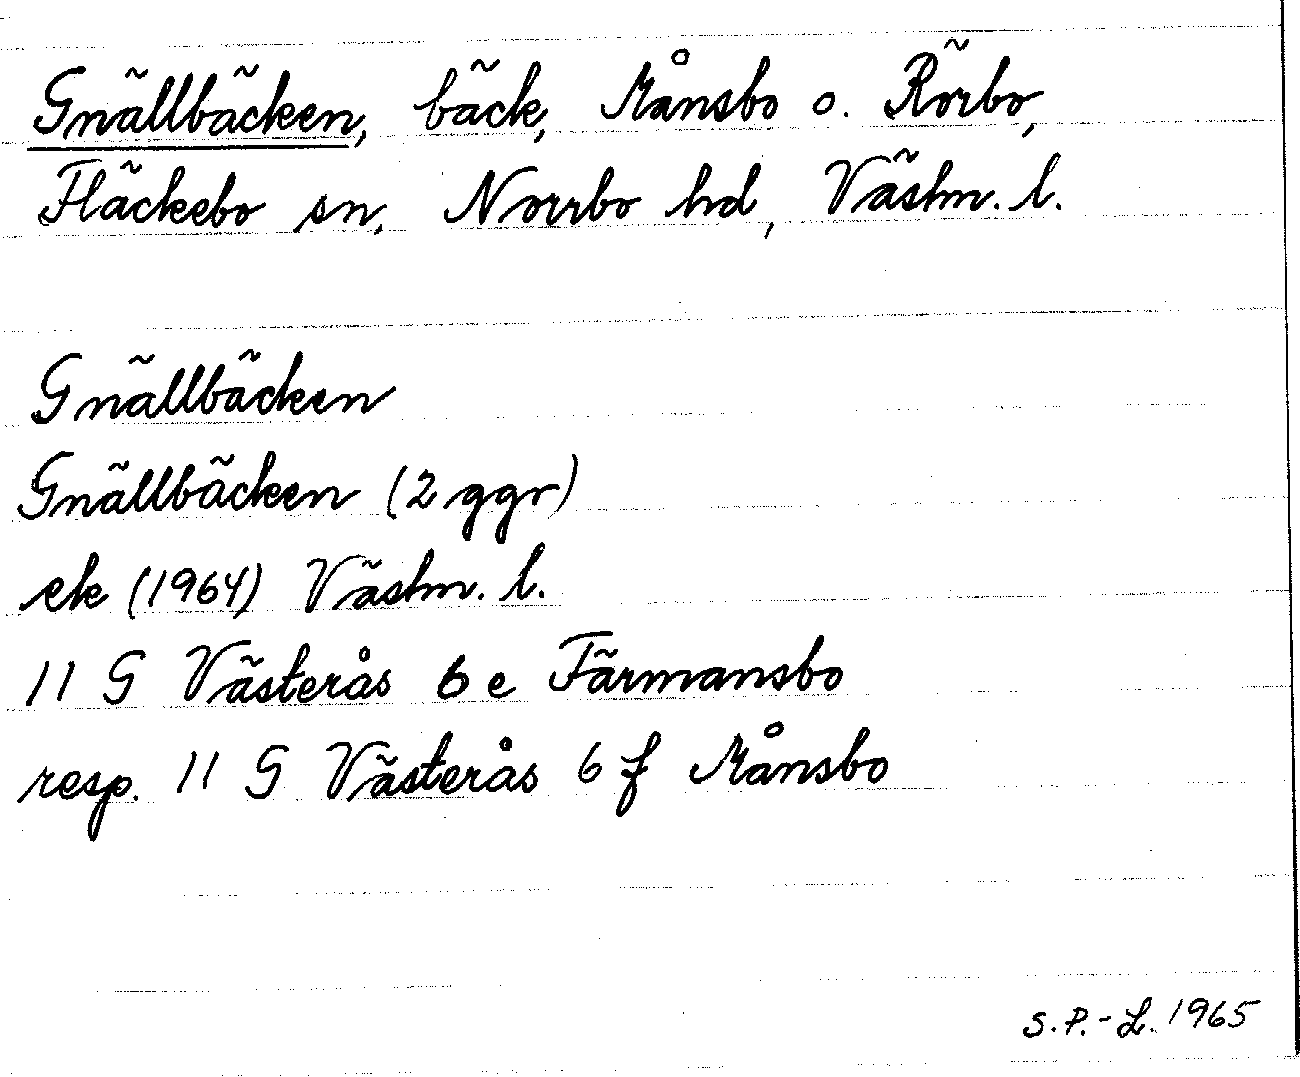 Gnällbäcken, bäck, Månsbo o. Rörbo,
Fläckebo sn, Norrbo hd, Västm. l.
Gnällbäcken
Gnällbäcken (2 ggr)
ek (1964) Västm. l.
11 G Västerås 6 e Färmansbo
resp. 11 G Västerås 6 f Månsbo
S.P.-L. 1965